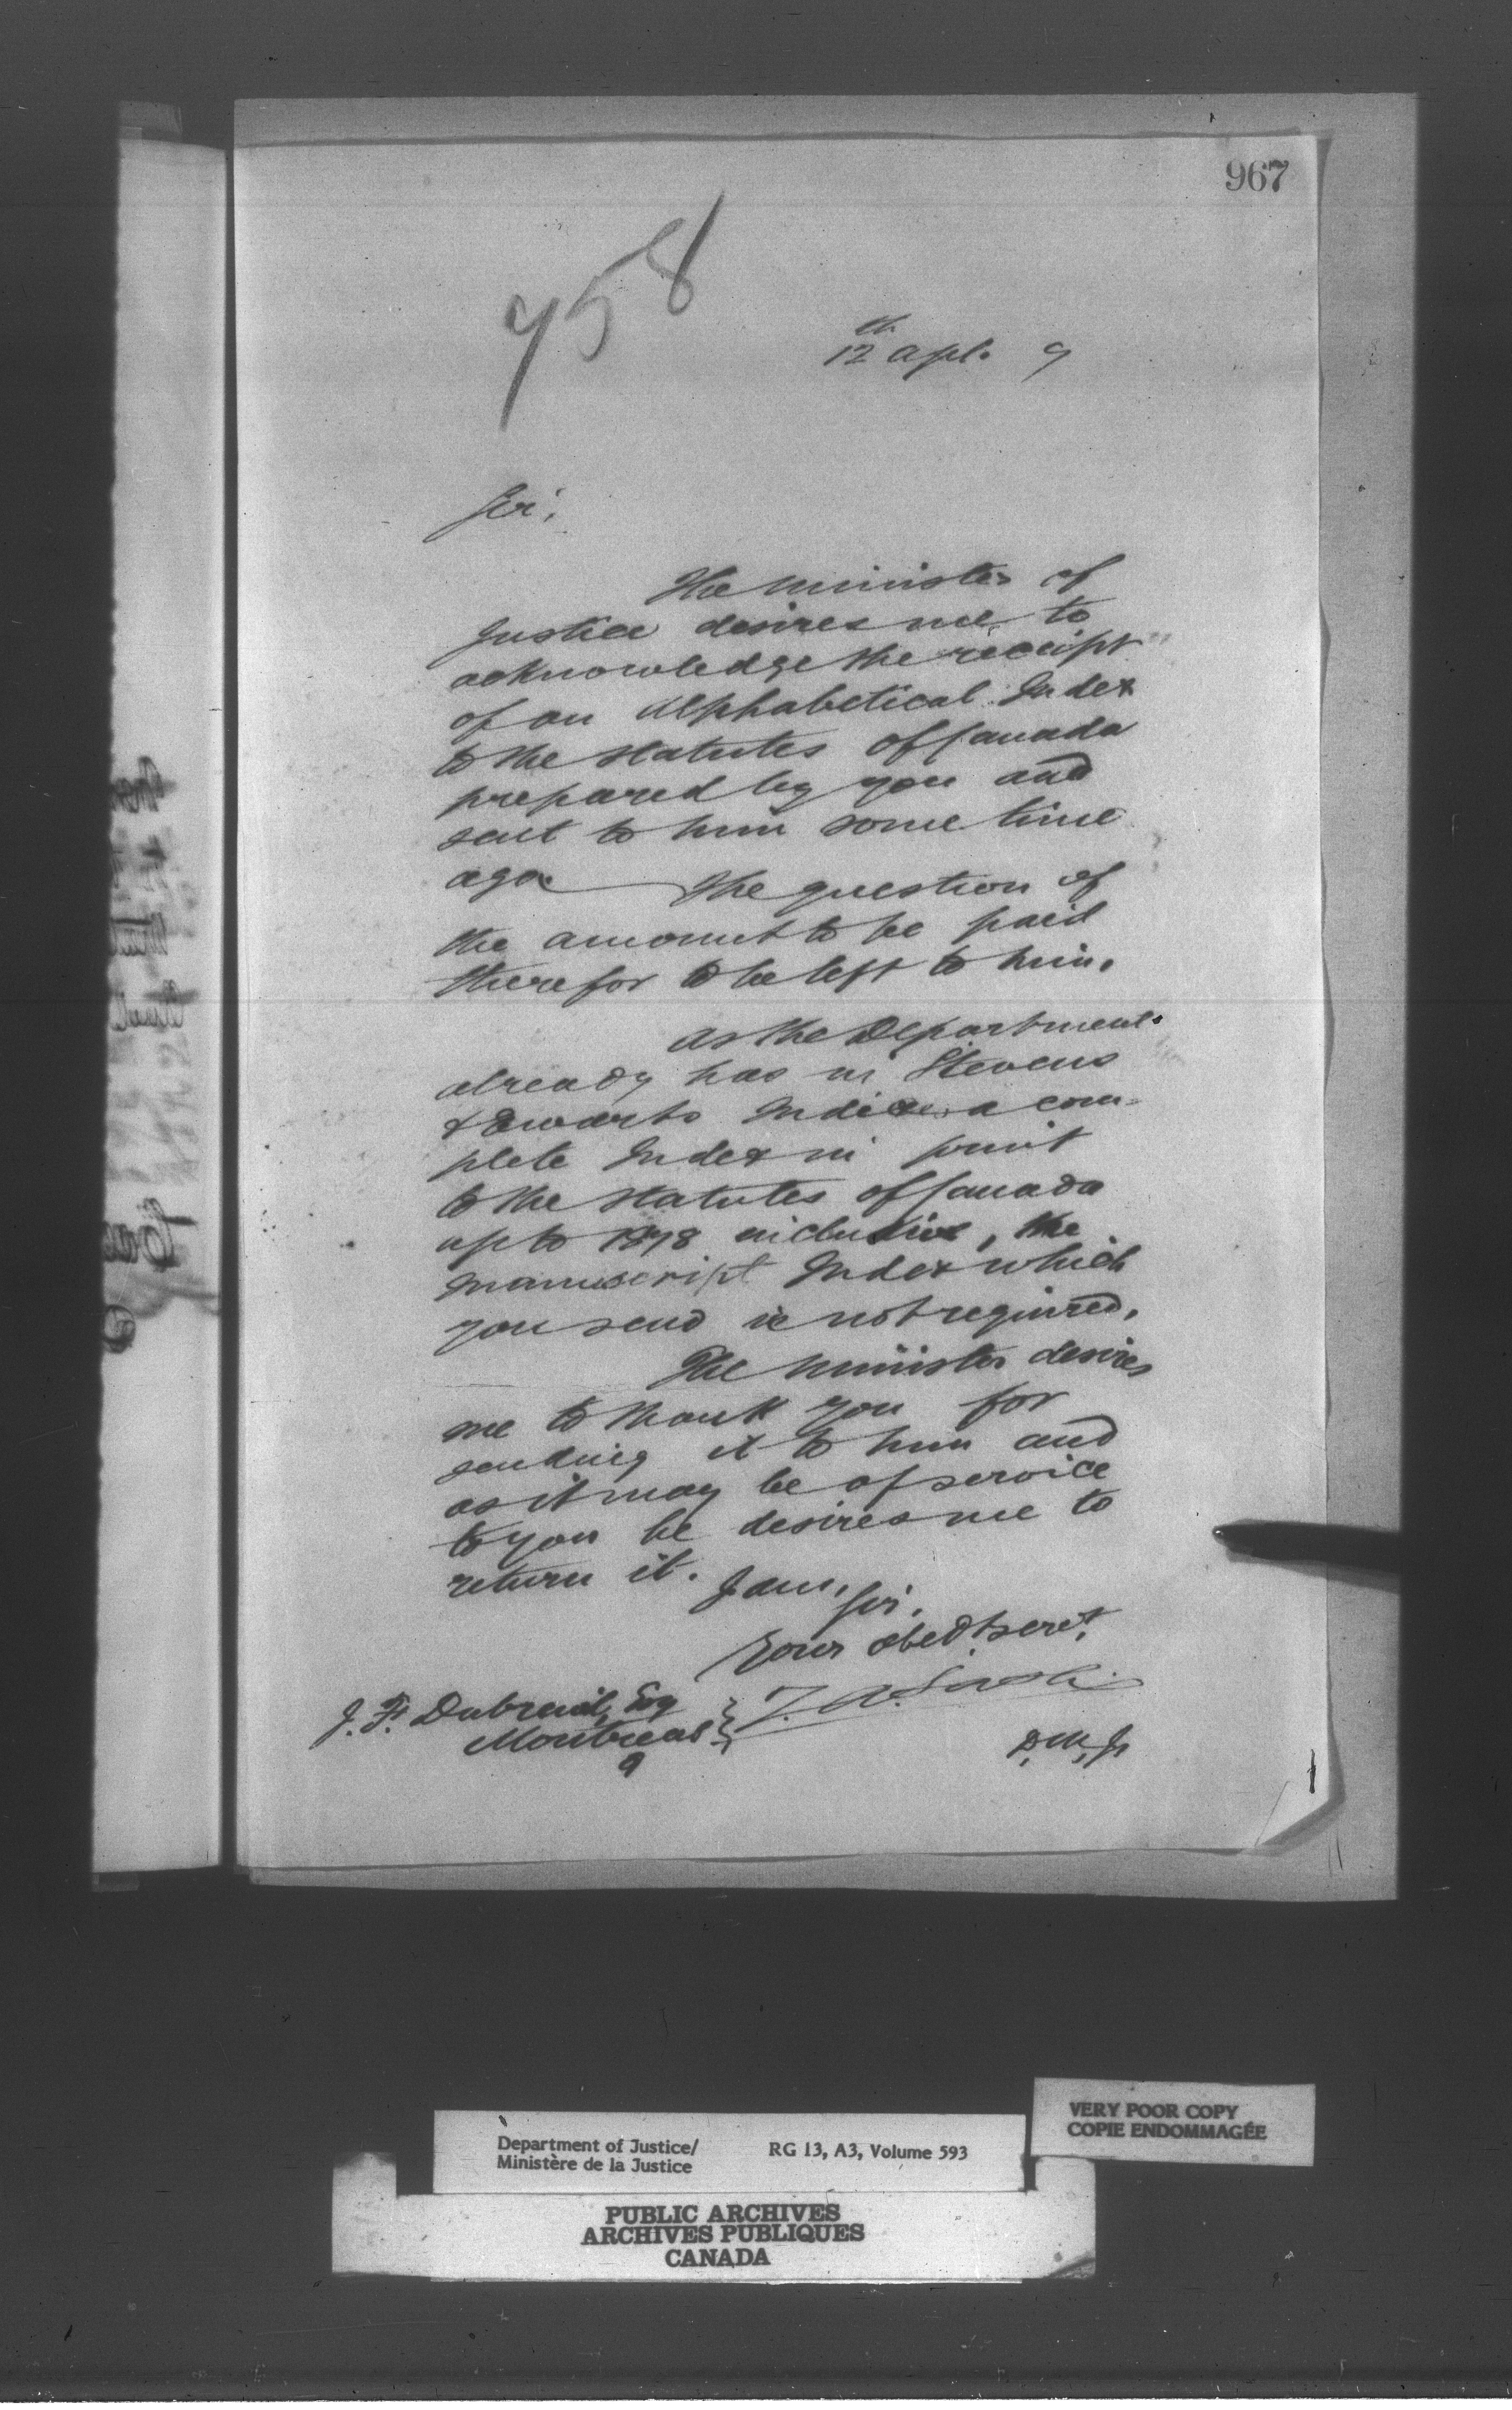 967
958
12th Apl. 9
Sir,
The Minister of
Justice desires me to
acknowledge the receipt
of an Alphabetical Index
to the Statutes of Canada
prepared by you and
sent to him some time
ago. The question of
the amount to be paid
therefor to be left to him.
As the Department
already has in Stevens
& Ewarts Indices a com-
plete Index in print
to the Statutes of Canada
up to 1878 inclusive, the
manuscript Index which
you send is not required.
The Minister desires
me to thank you for
sending it to him and
as it may be of service
to you he desires me to
return it.
I am, Sir,
Your obedt servt.
J. F. Dubreuil, Esq
Montreal
D.M.J.
VERY POOR COPY
COPIE ENDOMMAGÉE
Department of Justice/
Ministère de la Justice
RG 13, A3, Volume 593
PUBLIC ARCHIVES
ARCHIVES PUBLIQUES
CANADA